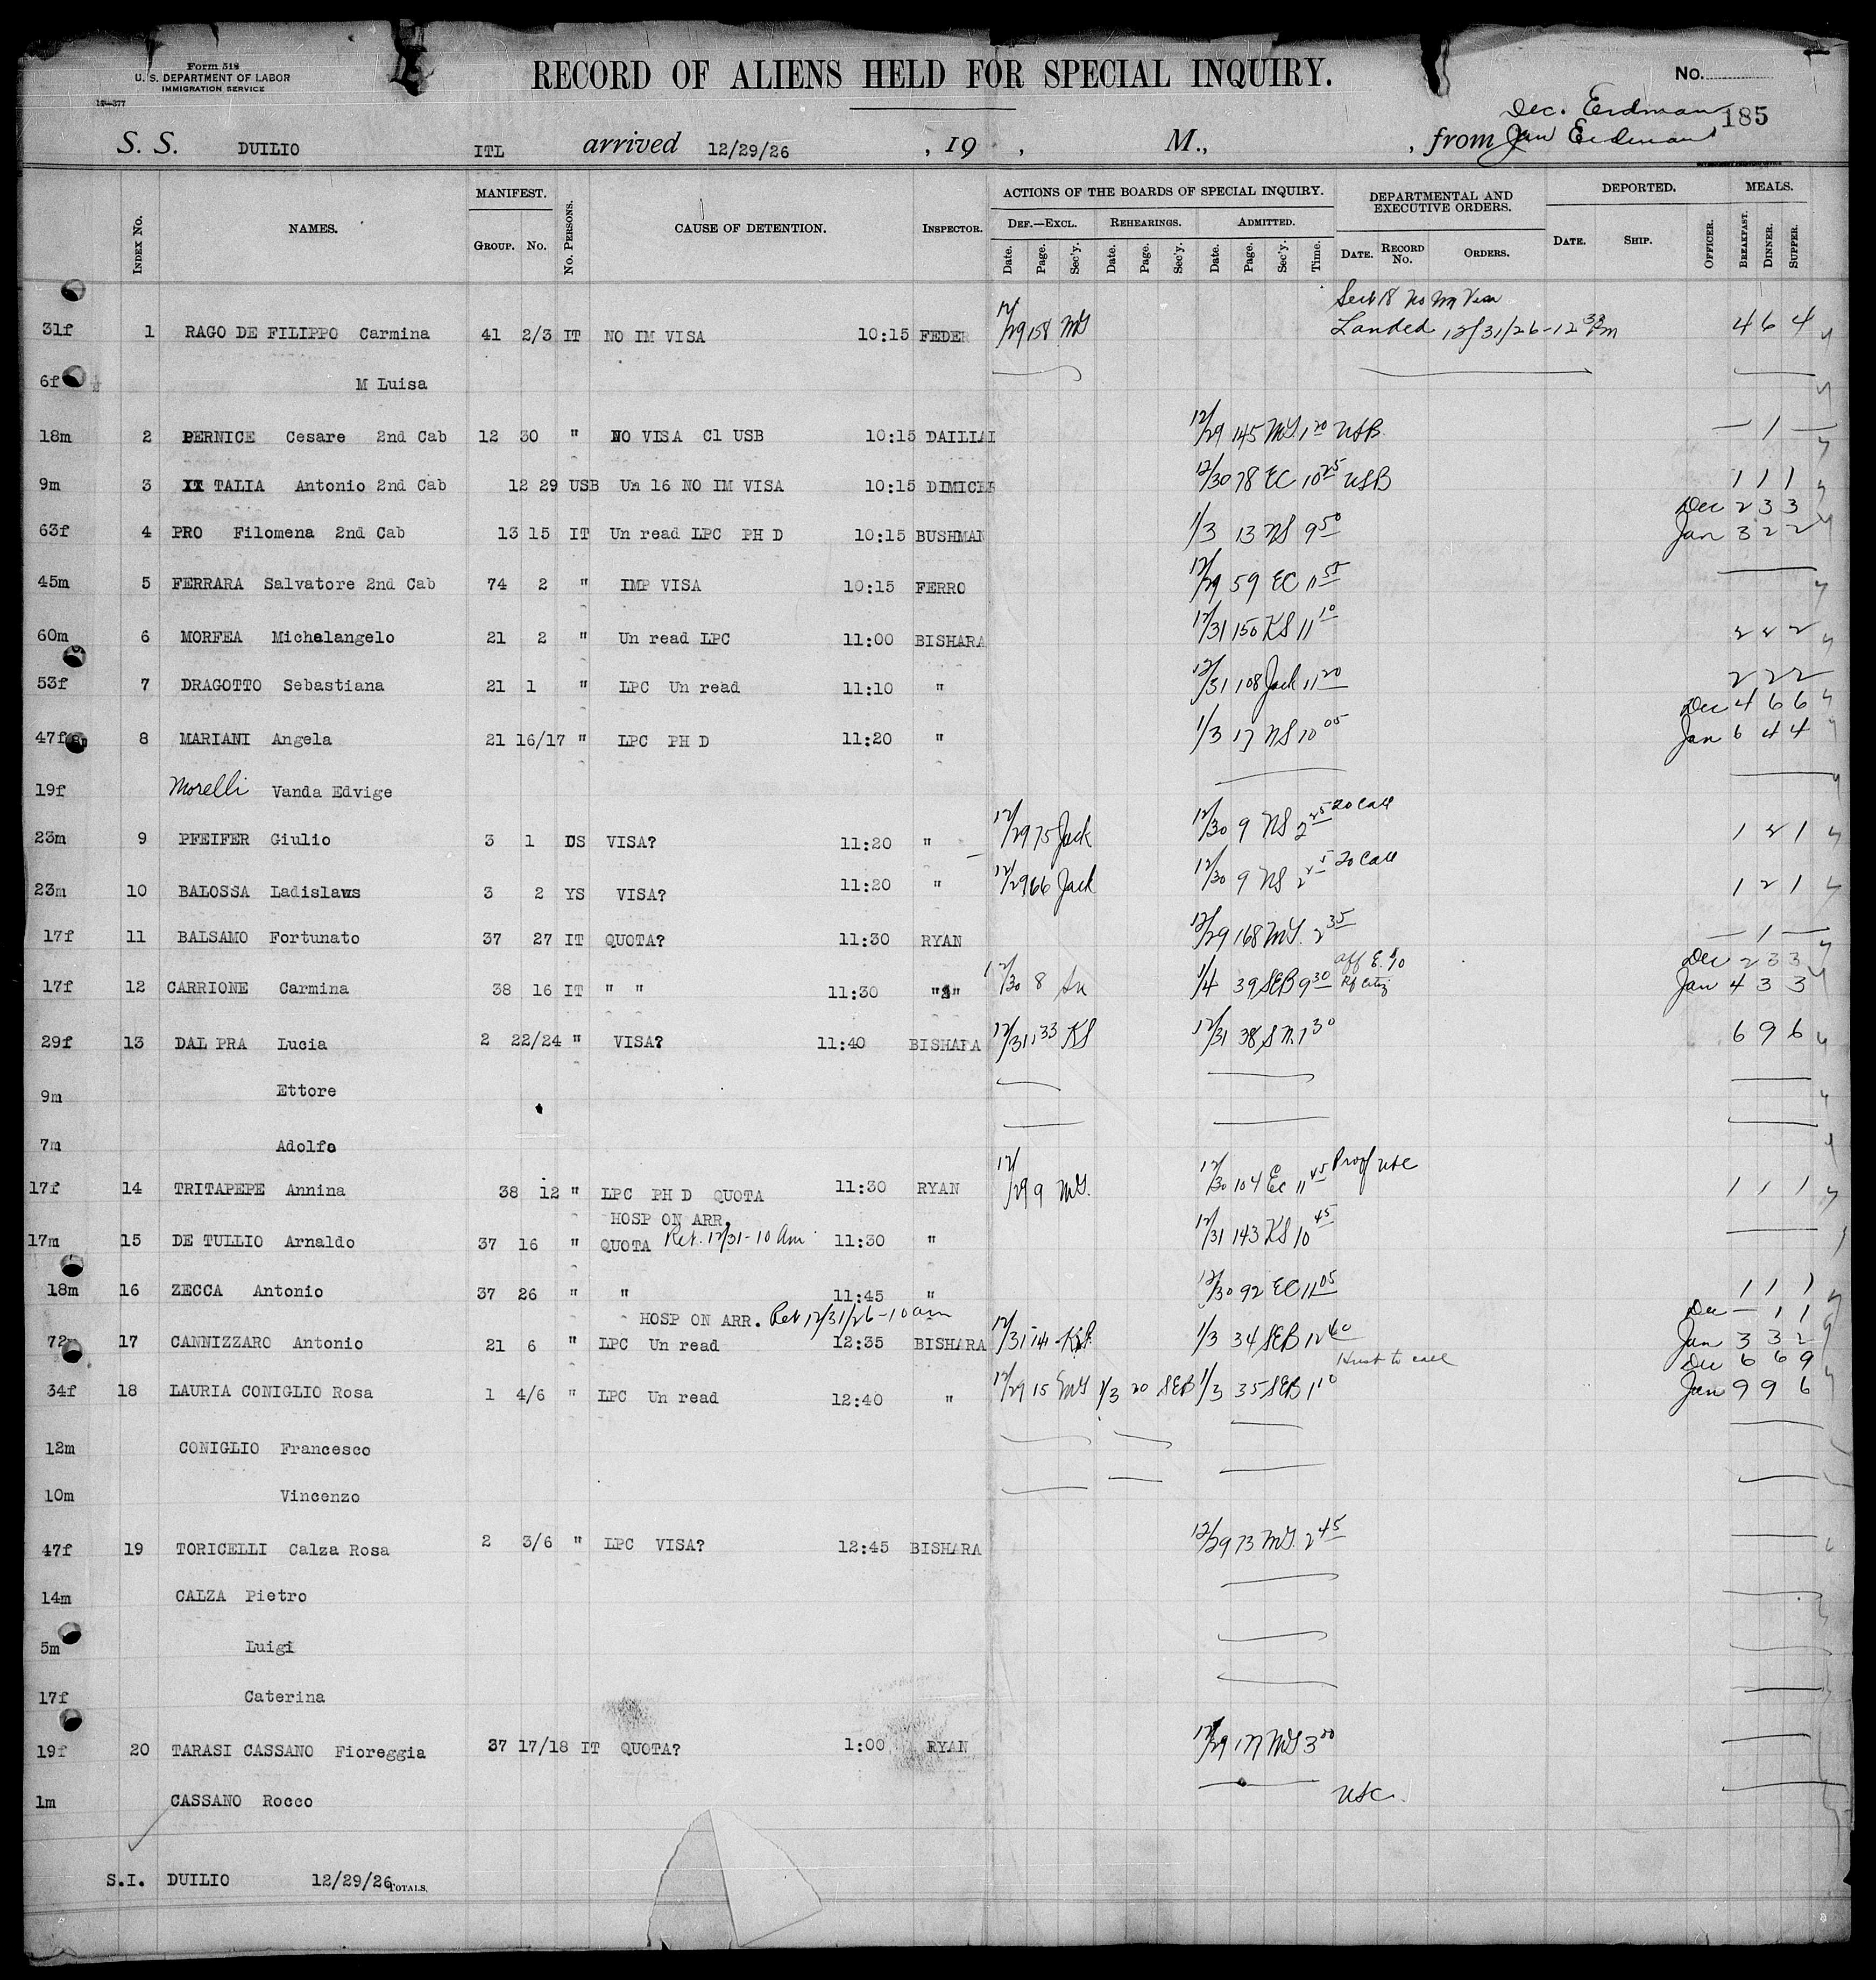 Form 518
U. S. DEPARTMENT OF LABOR
IMMIGRATION SERVICE
RECORD OF ALIENS HELD FOR SPECIAL INQUIRY.
No.
Dec. Erdman
185
S. S. DUILIO ITL arrived 12/29/26 , 19 , M., , from Jan Erdman
INDEX NO. NAMES. MANIFEST. GROUP. NO. NO. PERSONS. CAUSE OF DETENTION. INSPECTOR. ACTIONS OF THE BOARDS OF SPECIAL INQUIRY. DEF.—EXCL. Date. Page. Sec'y. REHEARINGS. Date. Page. Sec'y. ADMITTED. Date. Page. Sec'y. Time. DEPARTMENTAL AND EXECUTIVE ORDERS. DATE. RECORD NO. ORDERS. DEPORTED. DATE. SHIP. OFFICER. MEALS. BREAKFAST. DINNER. SUPPER.
31f 1 RAGO DE FILIPPO Carmina 41 2/3 IT NO IM VISA 10:15 FEDER 12/29 158 MG Landed 12/31/26-12 4 6 4
6f M Luisa
18m 2 PERNICE Cesare 2nd Cab 12 30 " NO VISA Cl USB 10:15 DAILIAI 12/29 145 MG 1 20 USB — 1 —
9m 3 IT TALIA Antonio 2nd Cab 12 29 USB Un 16 NO IM VISA 10:15 DIMICE 12/30 78 EC 10 25 USB 1 1 1
Dec 2 3 3
63f 4 PRO Filomena 2nd Cab 13 15 IT Un read LPC PH D 10:15 BUSHMAN 1/3 13 NS 9 50 Jan 3 2 2
45m 5 FERRARA Salvatore 2nd Cab 74 2 " IMP VISA 10:15 FERRO 12/29 59 EC 11 55
60m 6 MORFEA Michelangelo 21 2 " Un read LPC 11:00 BISHARA 12/31 150 KS 11 10 2 2 2
53f 7 DRAGOTTO Sebastiana 21 1 " LPC Un read 11:10 " 12/31 108 Jack 11 20 2 2 2
Dec 4 6 6
47f 8 MARIANI Angela 21 16/17 " LPC PH D 11:20 " 1/3 17 NS 10 05 Jan 6 4 4
19f Morelli Vanda Edvige
23m 9 PFEIFER Giulio 3 1 US VISA? 11:20 " 12/29 75 Jack 12/30 9 NS 2 25 to call 1 2 1
23m 10 BALOSSA Ladislaws 3 2 YS VISA? 11:20 " 12/29 66 Jack 12/30 9 NS 2 25 to call 1 2 1
17f 11 BALSAMO Fortunato 37 27 IT QUOTA? 11:30 RYAN 12/29 168 MG. 2 35 — 1 —
Dec 2 3 3
17f 12 CARRIONE Carmina 38 16 IT " " 11:30 " " 12/30 8 1/4 39 SEB 9 30 Jan 4 3 3
29f 13 DAL PRA Lucia 2 22/24 " VISA? 11:40 BISHARA 12/31 133 KS 12/31 38 1 30 6 9 6
9m Ettore
7m Adolfo
17f 14 TRITAPEPE Annina 38 12 " LPC PH D QUOTA 11:30 RYAN 12/29 9 MG. 12/30 104 EC 11 45 Proof USC 1 1 1
HOSP ON ARR.
17m 15 DE TULLIO Arnaldo 37 16 " QUOTA Ret. 12/31-10 Am 11:30 " 12/31 143 KS 10 45
18m 16 ZECCA Antonio 37 26 " " 11:45 " 12/30 92 EC 11 05 1 1 1
HOSP ON ARR. Ret 12/31/26-10 am Dec — 1 1
72 17 CANNIZZARO Antonio 21 6 " LPC Un read 12:35 BISHARA 12/31 141 KS 1/3 34 SEB 12 40 Jan 3 3 2
Dec 6 6 9
34f 18 LAURIA CONIGLIO Rosa 1 4/6 " LPC Un read 12:40 " 12/29 15 MG 1/3 20 SEB 1/3 35 SEB 1 10 Jan 9 9 6
12m CONIGLIO Francesco
10m Vincenzo
47f 19 TORICELLI Calza Rosa 2 3/6 " LPC VISA? 12:45 BISHARA 12/29 73 MG. 2 45
14m CALZA Pietro
5m Luigi
17f Caterina
19f 20 TARASI CASSANO Fioreggia 37 17/18 IT QUOTA? 1:00 RYAN 12/29 177 MG 3 00
1m CASSANO Rocco USC
S.I. DUILIO 12/29/26 TOTALS.